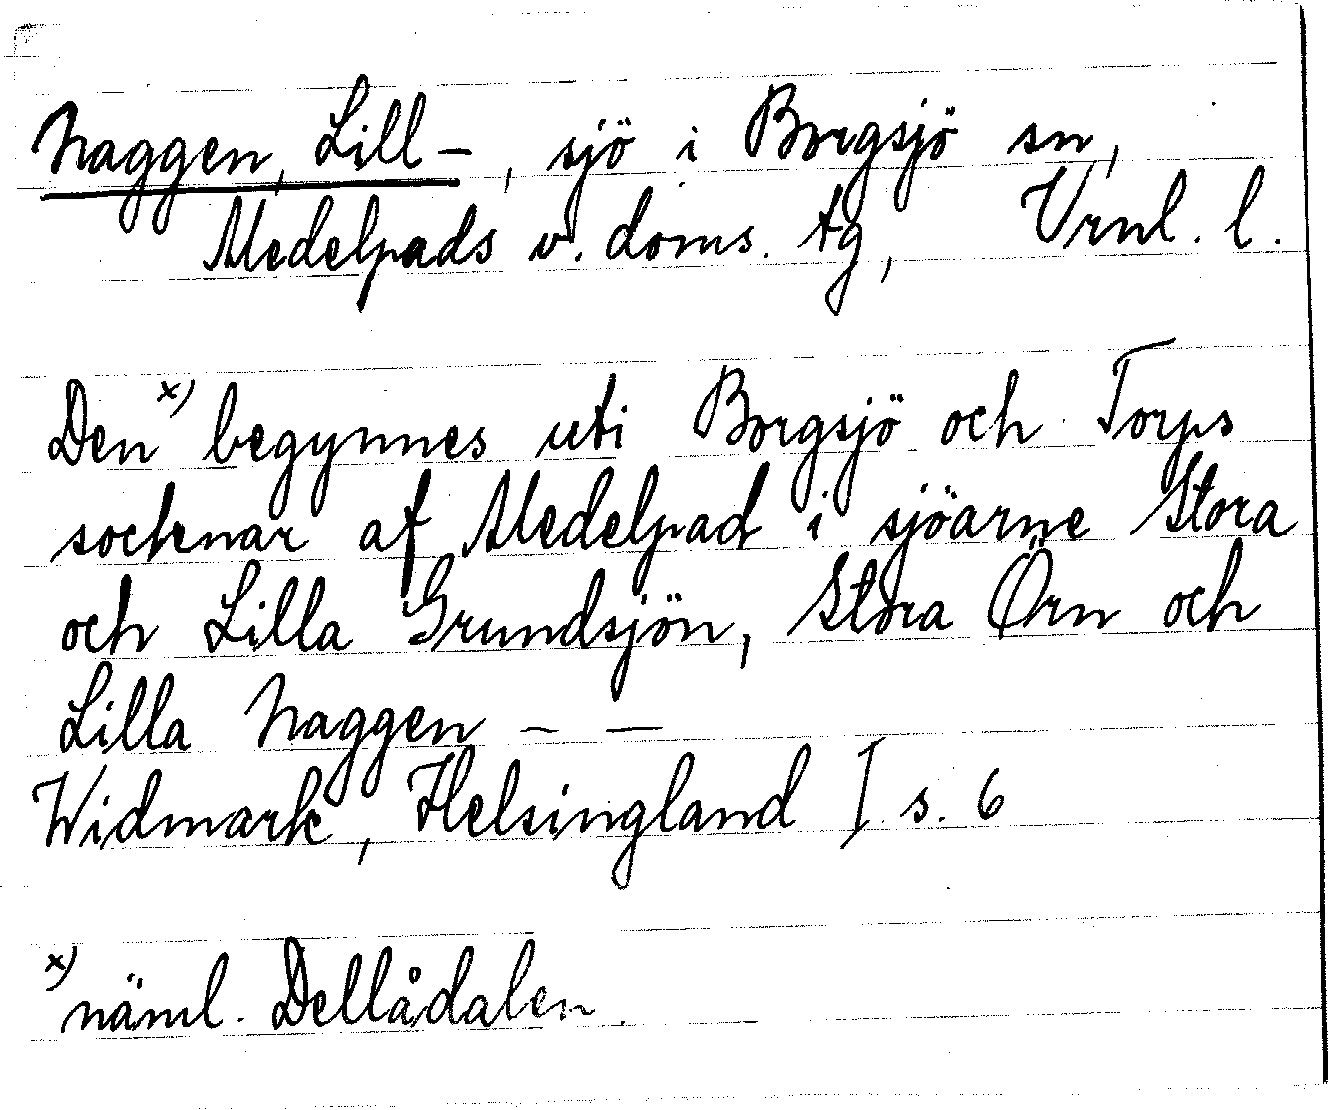 Naggen, Lill-, sjö i Borgsjö sn,
Medelpads v. doms. tg, Vrnl. l.
Den x) begynnes uti Borgsjö och Torps
socknar af Medelpad i sjöarne Stora
och Lilla Grundsjön, Stora Örn och
Lilla Naggen – —
Widmark, Helsingland I s. 6
x) näml. Dellådalen.